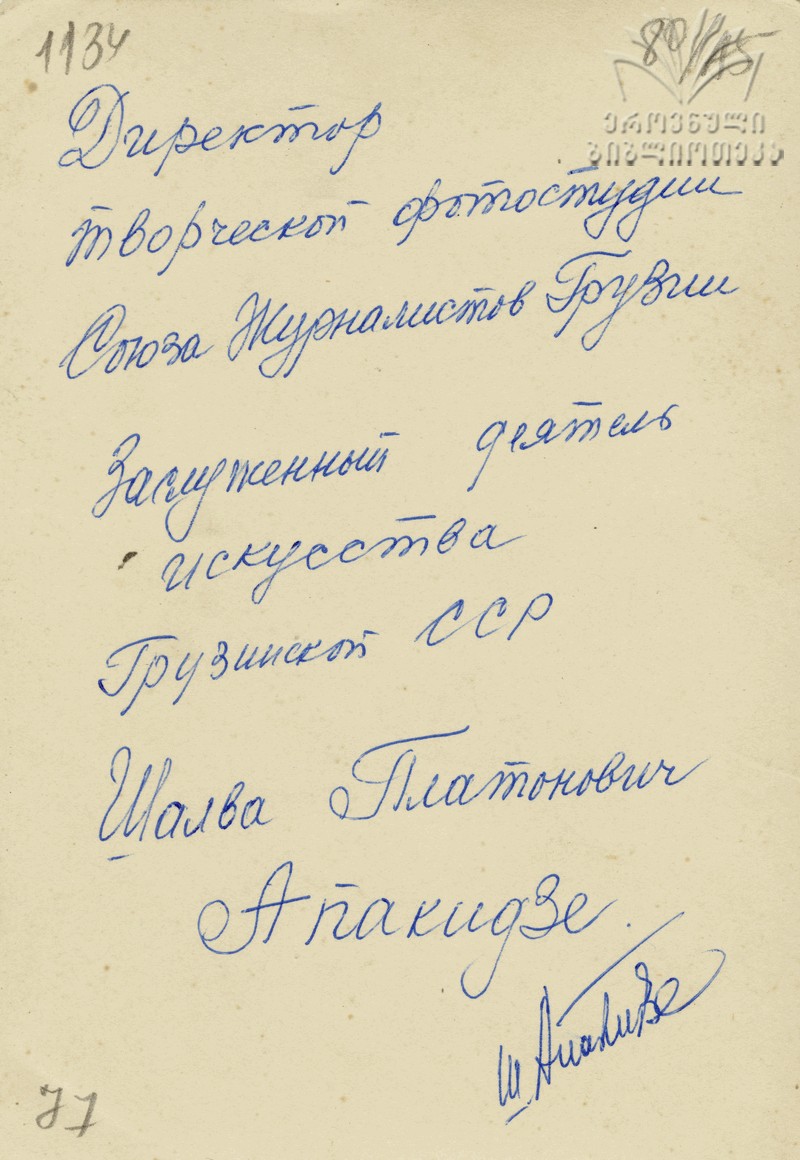 1134
80/15
ეროვნული
ბიბლიოთეკა
Директор
творческой фотостудии
Союза Журналистов Грузии
Заслуженный деятель
искусства
Грузинской ССР
Шалва Платонович
Апакидзе.
Ш. Апакидзе
77